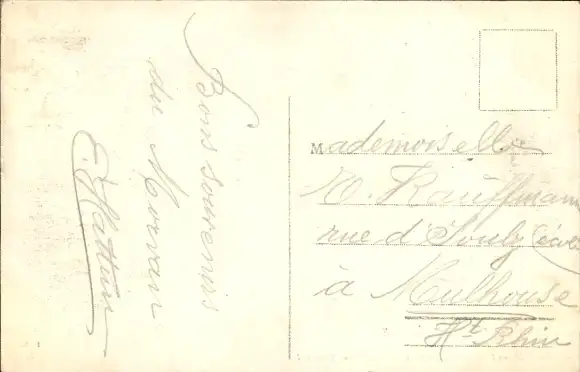 Bons souvenirs
du Morvan
Mademoiselle
Kauffmann
rue d'
à Mulhouse
Ht Rhin